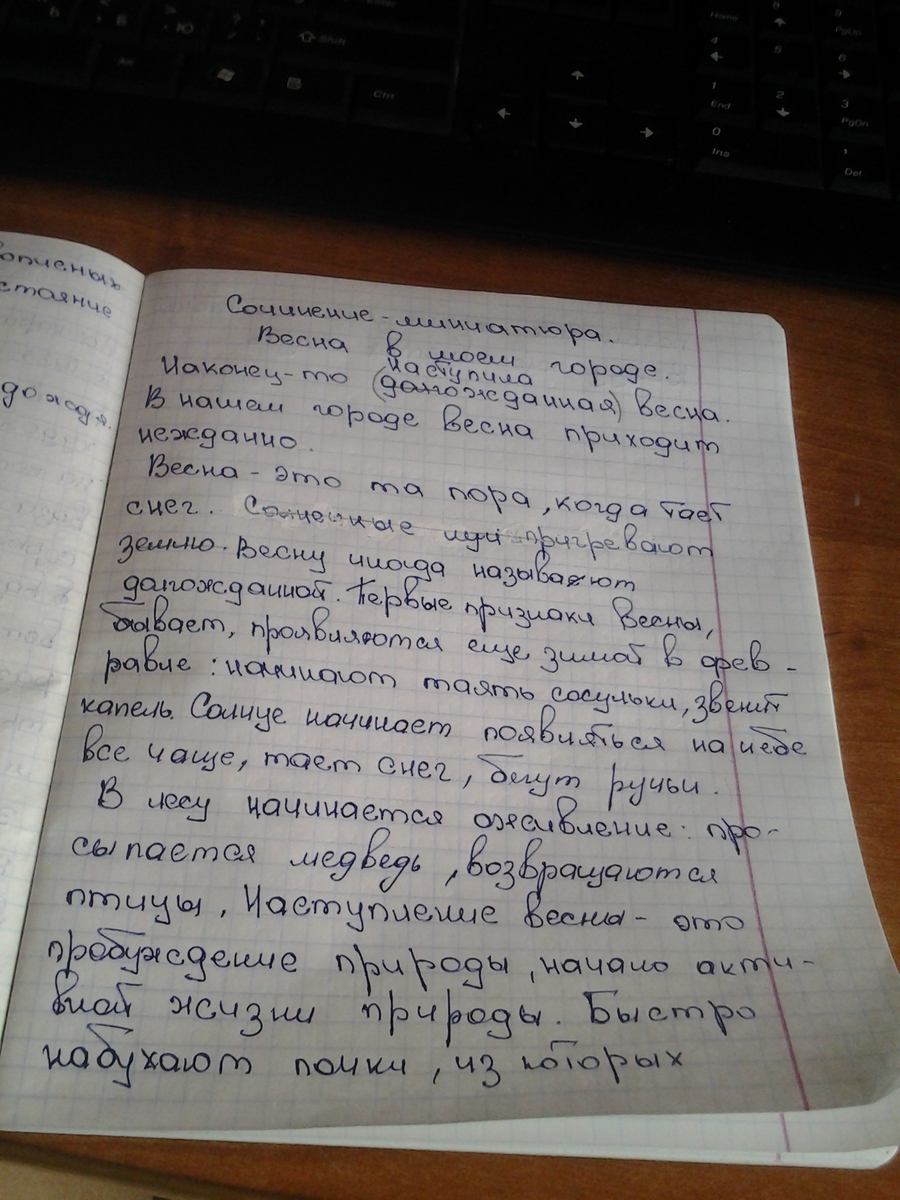 Enter
Shift
Alt
Ctrl
Home
PgUp
End
PgDn
Ins
Del
опченых
стояние
дождя.
Сочинение-миниатюра.
Весна в моем городе.
Наконец-то наступила (долгожданная) весна.
В нашем городе весна приходит
нежданно.
Весна - это та пора, когда тает
снег. Солнечные лучи пригревают
землю. Весну иногда называют
долгожданной. Первые признаки весны,
бывает, проявляются еще зимой в фев-
равле: начинают таять сосульки, звенит
капель. Солнце начинает появляться на небе
все чаще, тает снег, бегут ручьи.
В лесу начинается оживление: про-
сыпается медведь, возвращаются
птицы, Наступление весны - это
пробуждение природы, начало акти-
вной жизни природы. Быстро
набухают почки, из которых